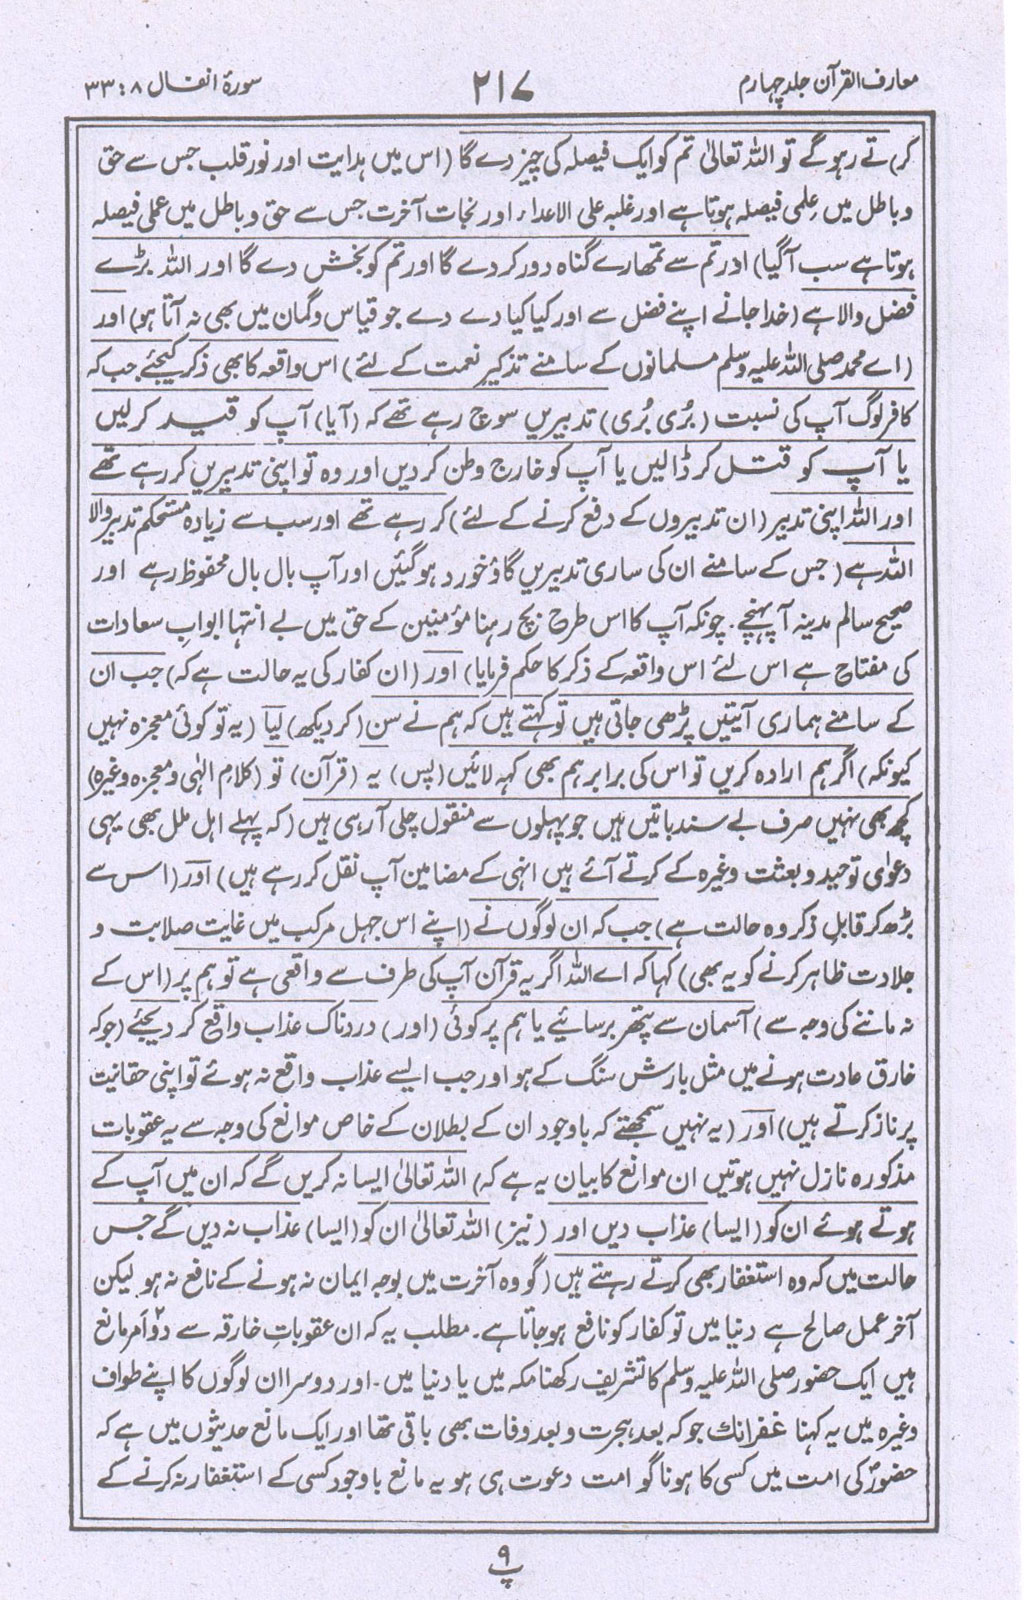 معارف القرآن جلد چہارم
۲۱۷
سورۂ انفال ۸ : ۳۳
کرتے رہو گے تو اللہ تعالیٰ تم کو ایک فیصلہ کی چیز دے گا (اس میں ہدایت اور نور قلب جس سے حق
و باطل میں علمی فیصلہ ہوتا ہے اور غلبہ علی الاعداء اور نجات آخرت جس سے حق و باطل میں عملی فیصلہ
ہوتا ہے سب آگیا) اور تم سے تمھارے گناہ دور کر دے گا اور تم کو بخش دے گا اور اللہ بڑے
فضل والا ہے (خدا جانے اپنے فضل سے اور کیا کیا دے دے جو قیاس و گمان میں بھی نہ آتا ہو) اور
(اے محمد صلی اللہ علیہ وسلم مسلمانوں کے سامنے تذکیرِ نعمت کے لئے) اس واقعہ کا بھی ذکر کیجئے جب کہ
کافر لوگ آپ کی نسبت (بُری بُری) تدبیریں سوچ رہے تھے کہ (آیا) آپ کو قید کرلیں
یا آپ کو قتل کر ڈالیں یا آپ کو خارج وطن کر دیں اور وہ تو اپنی تدبیریں کر رہے تھے
اور اللہ اپنی تدبیر (ان تدبیروں کے دفع کرنے کے لئے) کر رہے تھے اور سب سے زیادہ مستحکم تدبیر والا
اللہ ہے (جس کے سامنے ان کی ساری تدبیریں گاؤ خورد ہوگئیں اور آپ بال بال محفوظ رہے اور
صحیح سالم مدینہ آپہنچے۔ چونکہ آپ کا اس طرح بچ رہنا مؤمنین کے حق میں بے انتہا ابوابِ سعادات
کی مفتاح ہے اس لئے اس واقعہ کے ذکر کا حکم فرمایا) اور (ان کفار کی یہ حالت ہے کہ) جب ان
کے سامنے ہماری آیتیں پڑھی جاتی ہیں تو کہتے ہیں کہ ہم نے سن (کر دیکھ) لیا (یہ تو کوئی معجزہ نہیں
کیونکہ) اگر ہم ارادہ کریں تو اس کی برابر ہم بھی کہہ لائیں (پس) یہ (قرآن) تو (کلام الٰہی و معجزہ وغیرہ)
کچھ بھی نہیں صرف بے سند باتیں ہیں جو پہلوں سے منقول چلی آرہی ہیں (کہ پہلے اہل ملل بھی یہی
دعوٰی توحید و بعثت وغیرہ کے کرتے آئے ہیں انہی کے مضامین آپ نقل کر رہے ہیں) اور (اس سے
بڑھ کر قابلِ ذکر وہ حالت ہے) جب کہ ان لوگوں نے (اپنے اس جہل مرکب میں غایت صلابت و
جلادت ظاہر کرنے کو یہ بھی) کہا کہ اے اللہ اگر یہ قرآن آپ کی طرف سے واقعی ہے تو ہم پر (اس کے
نہ ماننے کی وجہ سے) آسمان سے پتھر برسائیے یا ہم پر کوئی (اور) دردناک عذاب واقع کر دیجئے (جو کہ
خارق عادت ہونے میں مثل بارش سنگ کے ہو اور جب ایسے عذاب واقع نہ ہوئے تو اپنی حقانیت
پر ناز کرتے ہیں) اور (یہ نہیں سمجھتے کہ باوجود ان کے بطلان کے خاص موانع کی وجہ سے یہ عقوبات
مذکورہ نازل نہیں ہوتیں ان موانع کا بیان یہ ہے کہ) اللہ تعالیٰ ایسا نہ کریں گے کہ ان میں آپ کے
ہوتے ہوئے ان کو (ایسا) عذاب دیں اور (نیز) اللہ تعالیٰ ان کو (ایسا) عذاب نہ دیں گے جس
حالت میں کہ وہ استغفار بھی کرتے رہتے ہیں (گو وہ آخرت میں بوجہ ایمان نہ ہونے کے نافع نہ ہو لیکن
آخر عمل صالح ہے دنیا میں تو کفار کو نافع ہوجاتا ہے۔ مطلب یہ کہ ان عقوباتِ خارقہ سے دو امر مانع
ہیں ایک حضور صلی اللہ علیہ وسلم کا تشریف رکھنا مکہ میں یا دنیا میں۔ اور دوسرا ان لوگوں کا اپنے طواف
وغیرہ میں یہ کہنا غفرانک جو کہ بعد ہجرت و بعد وفات بھی باقی تھا اور ایک مانع حدیثوں میں ہے کہ
حضورؐ کی امت میں کسی کا ہونا گو امت دعوت ہی ہو یہ مانع باوجود کسی کے استغفار نہ کرنے کے
پ ۹